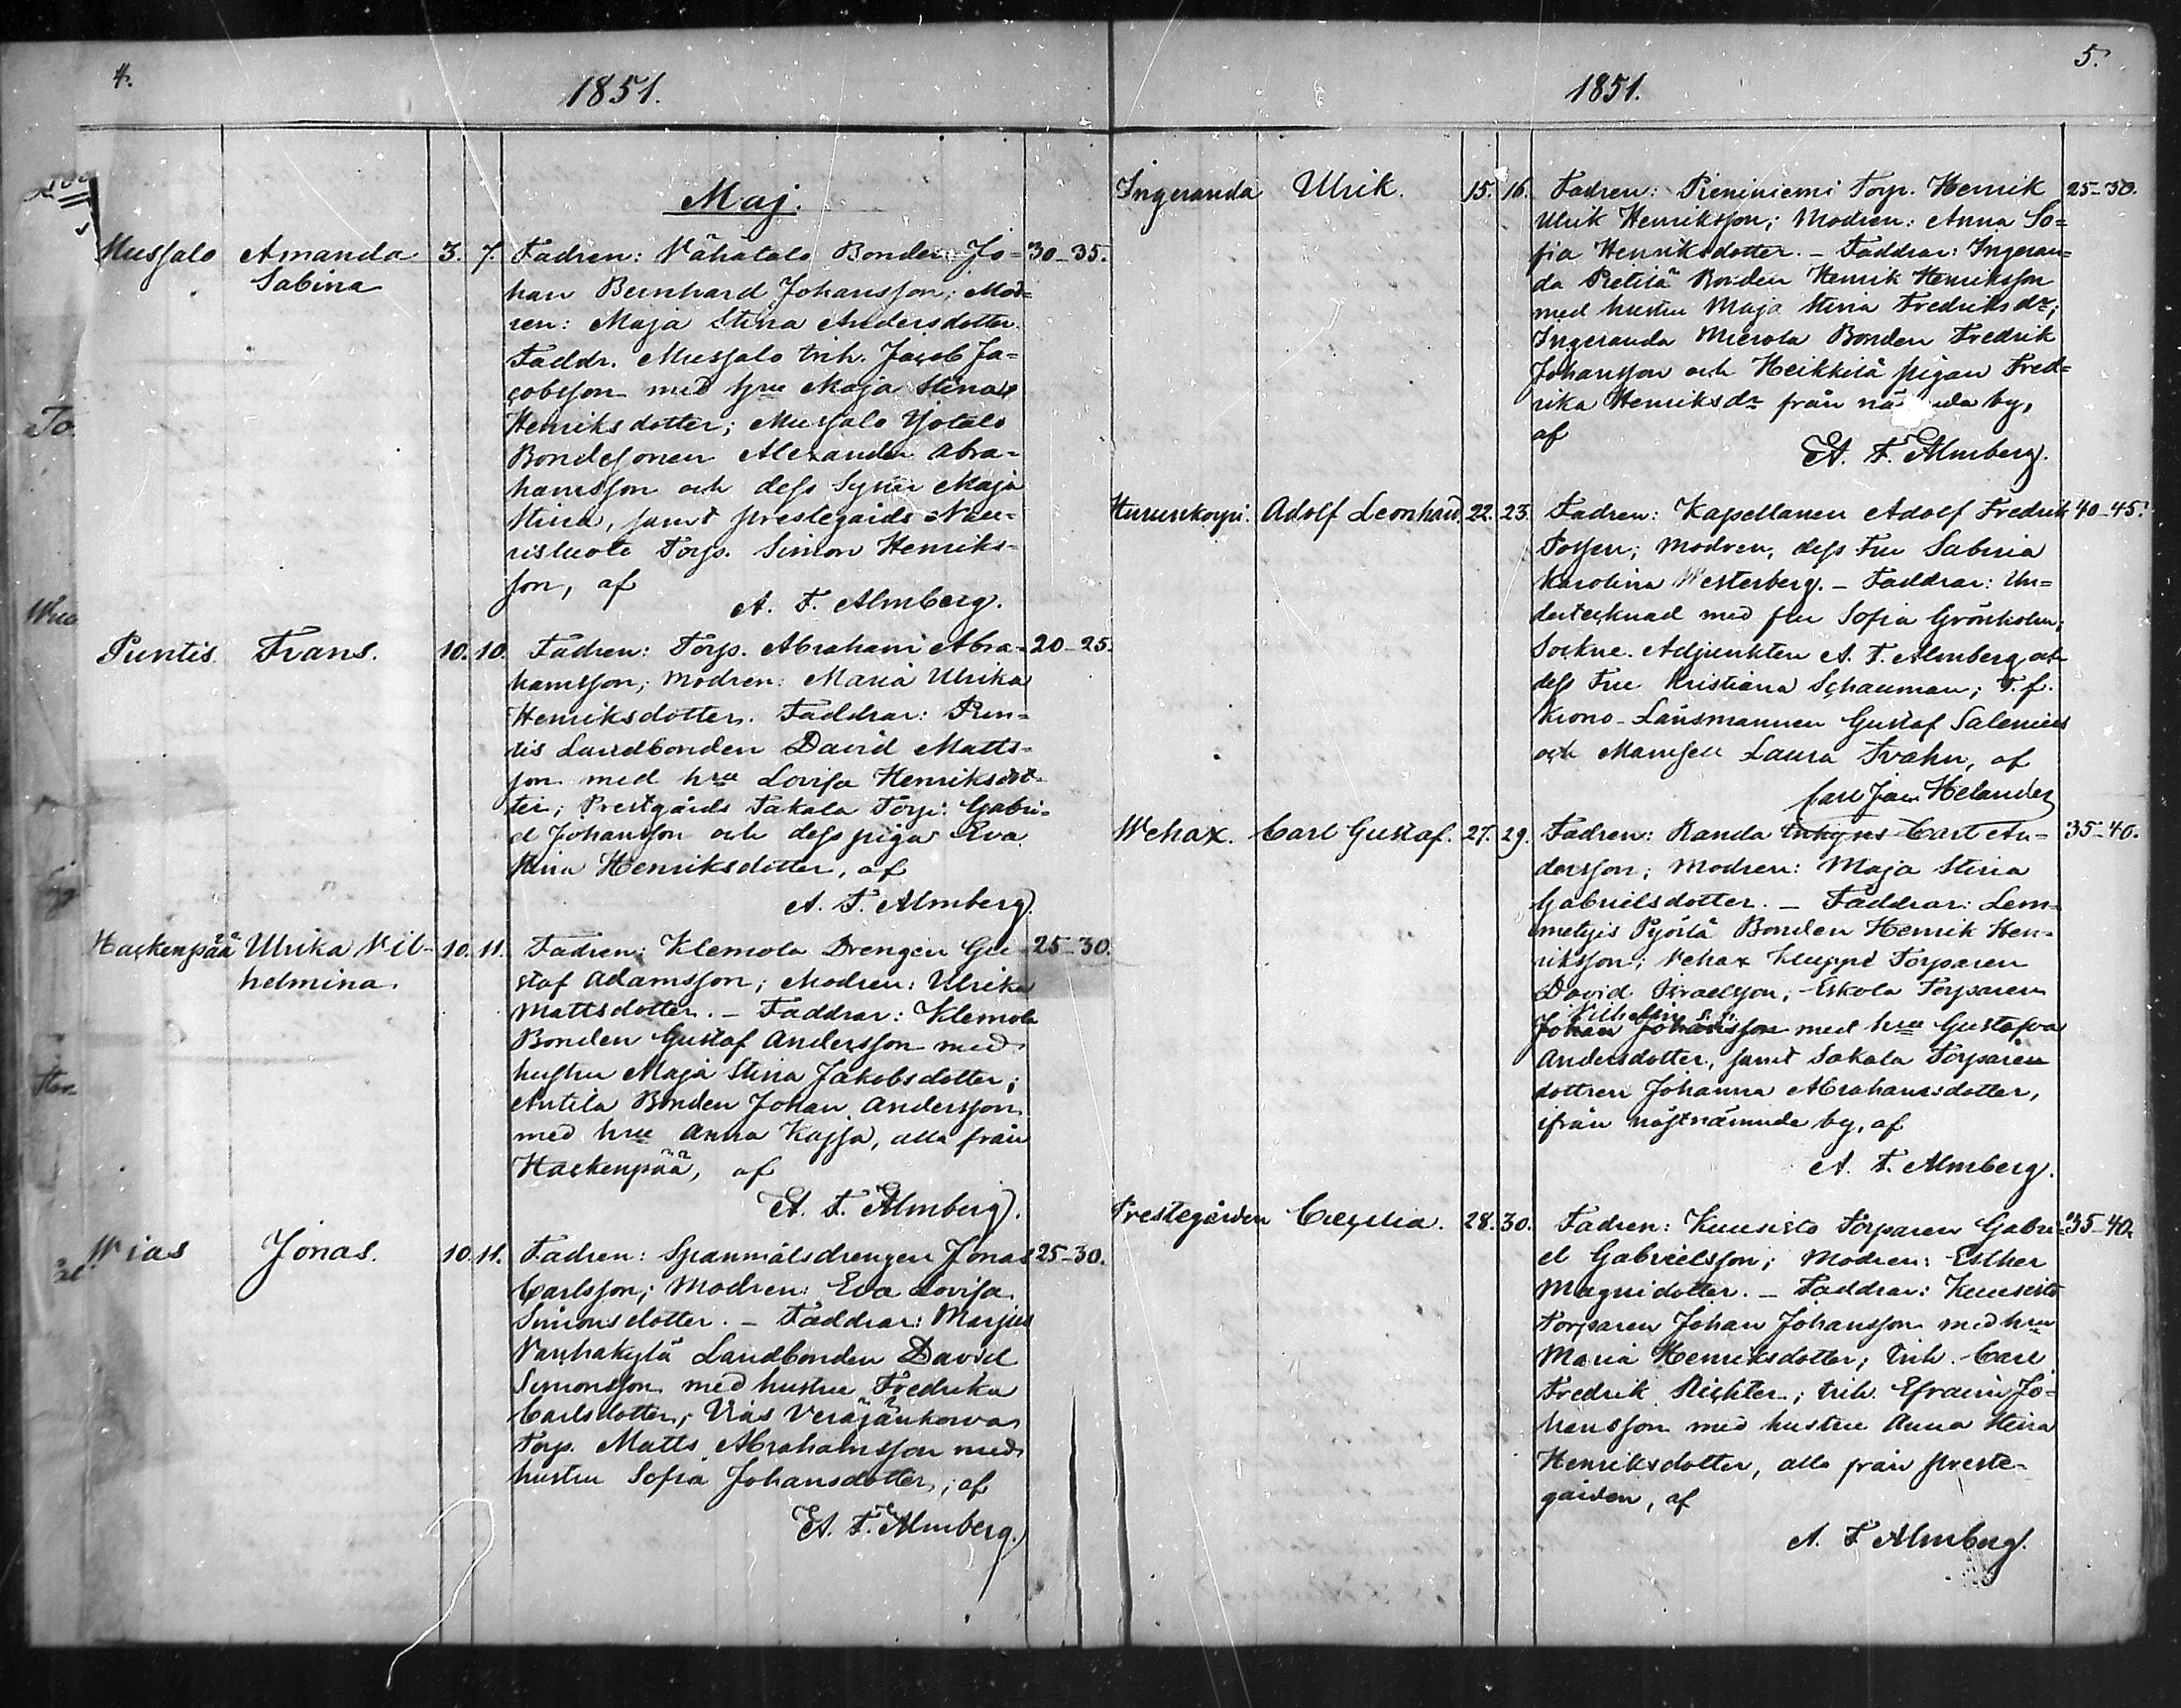 4.
1851.
Maj.
Mussalo Amanda 3. 7. Fadren: Vähätalo Bonden Jo= 30-35.
Sabina han Bernhard Johansson; Mod=
ren: Maja Stina Andersdotter.
Faddr. Mussalo Inh. Jacob Ja=
cobsson med hru Maja Stina
Henriksdotter; Mussalo Yötalo
Bondesonen Alexander Abra=
hamsson och dess Syster Maja
Stina, samt prestegårds
Torp. Simon Henriks-
son, af
A. F. Almberg.
Puntis Frans. 10. 10. Fadren: Torp. Abraham Abra- 20-25.
hamsson; Modren: Maria Ulrika
Henriksdotter. Faddrar: Pun=
tis Landbonden David Matts-
son med hru Lovisa Henriksdot-
ter; Prestgårds Takala Torp: Gabri-
el Johansson och dess piga Eva
Stina Henriksdotter, af
A. F. Almberg.
Hackenpää Ulrika Vil- 10. 11. Fadren: Klemola Drengen Gu- 25-30.
helmina. staf Adamsson; Modren: Ulrika
Mattsdotter. - Faddrar: Klemola
Bonden Gustaf Andersson med
hustru Maja Stina Jakobsdotter;
Antila Bonden Johan Andersson
med hru Anna Kajsa, alla från
Hackenpää, af
A. F. Almberg.
Wias Jonas. 10. 11. Fadren: Spanmålsdrengen Jonas 25-30.
Carlsson; Modren: Eva Lovisa
Simonsdotter. - Faddrar: Marjus
Vanhakylä Landbonden David
Simonsson med hustru Fredrika
Carlsdotter; Vias Veräjänkorva
Torp. Matts Abrahamsson med
hustru Sofia Johansdotter, af
A. F. Almberg.
5.
1851.
Ingeranda Ulrik. 15. 16. Fadren: Pieniniemi Torp. Henrik 25-30.
Ulrik Henriksson; Modren: Anna So=
fia Henriksdotter. - Faddrar: Ingeran=
da Pietilä Bonden Henrik Henriksson
med hustru Maja Stina Fredriksdr;
Ingeranda Mierola Bonden Fredrik
Johansson och Heikkilä pigan Fred=
rika Henriksdr från nä da by,
af
A. F. Almberg.
Adolf Leonhard 22. 23. Fadren: Kapellanen Adolf Fredrik 40-45.
Modren, dess Fru Sabina
Karolina Westerberg. - Faddrar: Un=
dertecknad med fru Sofia Grönholm;
Sockne Adjunkten A. F. Almberg och
dess Fru Kristiana Schauman; T. f.
Krono-Länsmannen Gustaf Salenius
och Mamsell Laura Svahn, af
Carl Jac Helander
Wehax. Carl Gustaf. 27. 29. Fadren: Randa Inhyses Carl An- 35-40.
dersson; Modren: Maja Stina
Gabrielsdotter. - Faddrar: Lem=
metyis Pyörlä Bonden Henrik Hen-
riksson; Vehax Torparen
David Israelsson, Eskola Torparen
Vilhelm s. s.
Johan Johansson med hru Gustafva
Andersdotter, samt Sakala Torpare
dottren Johanna Abrahamsdotter,
ifrån näst nämnde by, af
A. F. Almberg.
Prestegården Cecilia. 28. 30. Fadren: Kuusisto Torparen Gabri= 35-40.
el Gabrielsson; Modren: Esther
Magnidotter. - Faddrar: Kuusisto
Torparen Johan Johansson med hru
Maria Henriksdotter; Inh. Carl
Fredrik Richter; Inh. Efraim Jo-
hansson med hustru Anna Stina
Henriksdotter, alla från preste-
gården, af
A. F. Almberg.